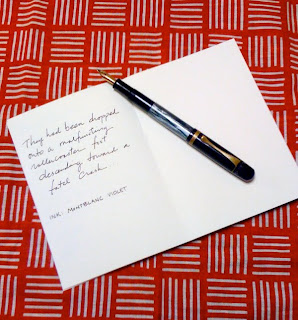 They had been dropped
onto a malfunctioning
rollercoaster fast
descending toward a
fatal crash
INK: MONTBLANC VIOLET